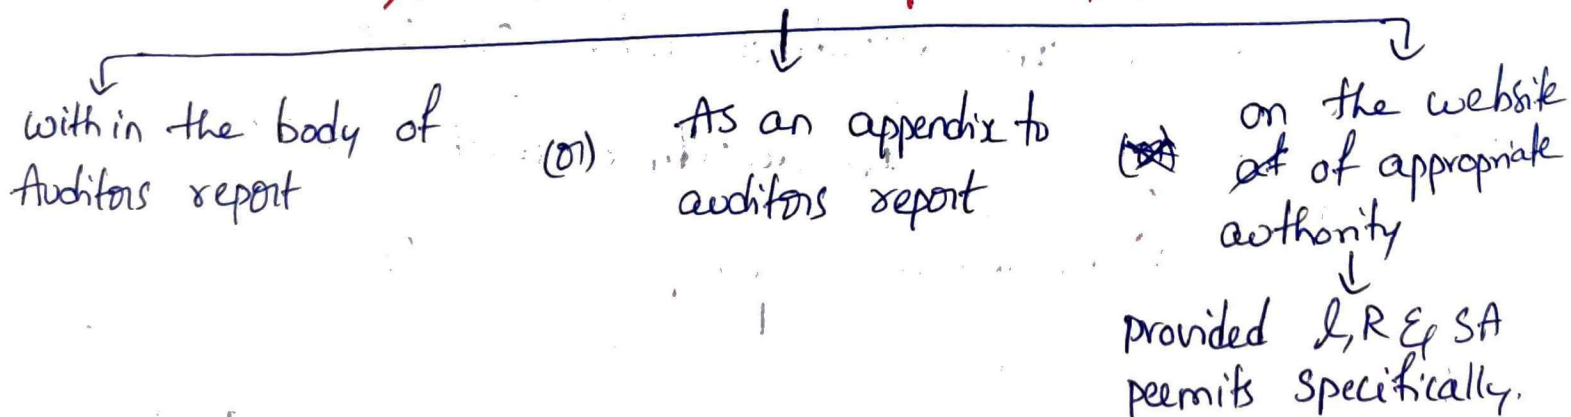 within the body of
Auditors report
(or)
As an appendix to
auditors report
on the website
of appropriate
authority
provided l,R & SA
peemits specifically.